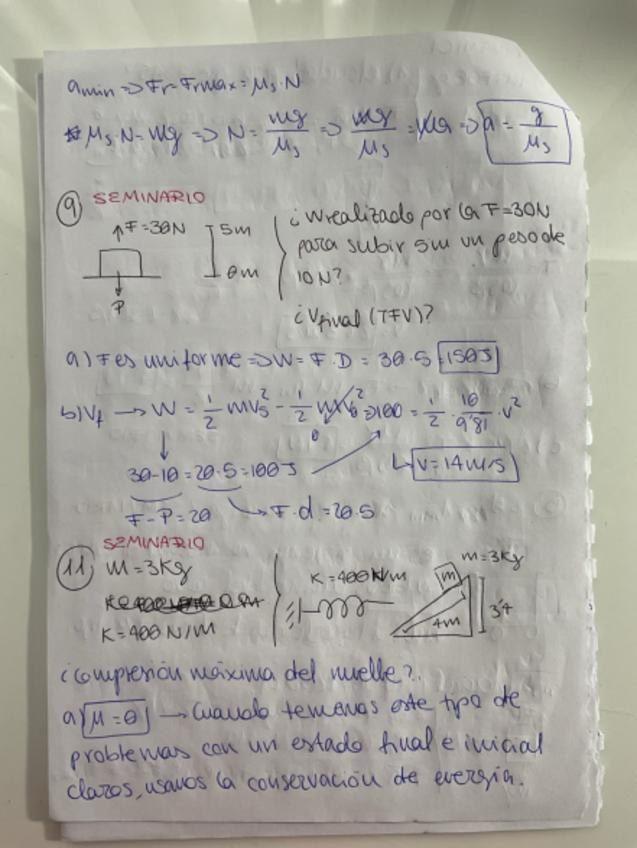 amin => Fr = Frmax = μs·N
* μs·N = mg => N = mg/μs => mg/μs = ma => a = g/μs
9 SEMINARIO
F=30N
5m
0m
P
¿Wrealizado por la F=30N
para subir 5m un peso de
10N?
¿Vfinal (TFV)?
a) F es uniforme => W = F·D = 30·5 = 150J
b) Vf → W = 1/2 mv5² - 1/2 mv0² => 100 = 1/2 · 10/9'81 · v²
0
30-10 = 20·5 = 100J
↳ V = 14m/s
F-P = 20 → F·d = 20·5
SEMINARIO
11 m = 3Kg
K = 400 N/m
K = 400N/m
m = 3Kg
m
4m
3'4
¿Compresión máxima del muelle?
a) μ = 0 → Cuando tenemos este tipo de
problemas con un estado final e inicial
claros, usamos la conservación de energía.